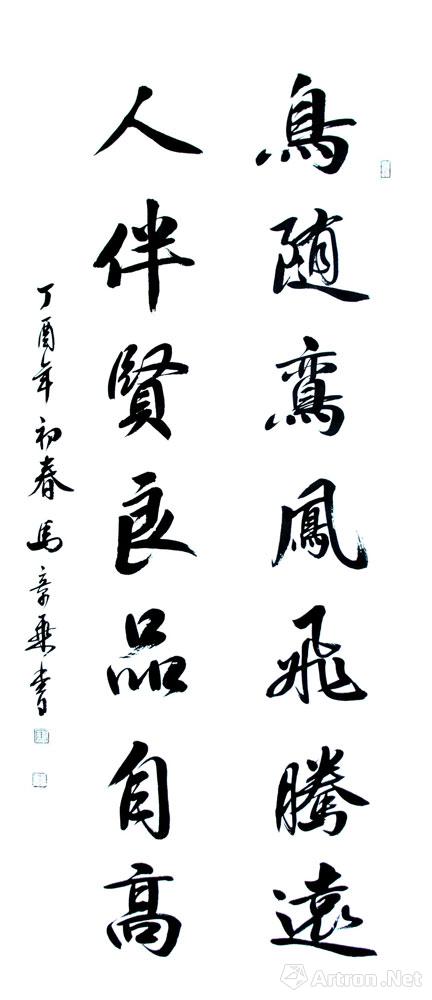 鳥随鸞鳳飛騰遠
人伴賢良品自高
丁酉年初春馬章乗書
Artron.Net